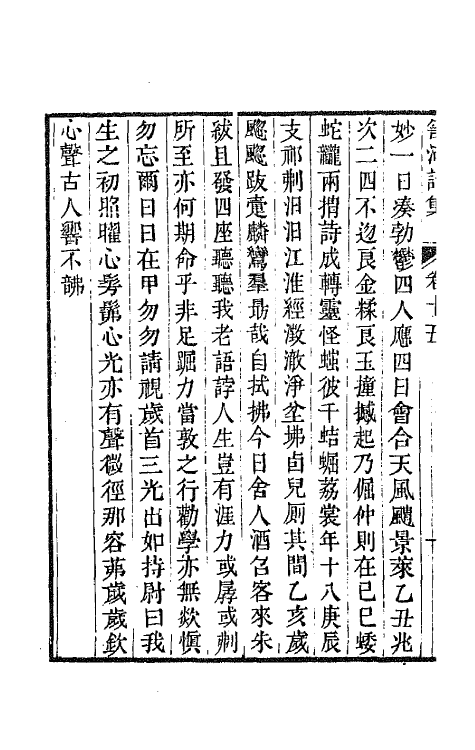 詩集 卷十五
妙一日奏勃鬱四人應四日會合天風颸景萊乙丑兆
次二四不迩良金糅良玉撞撼起乃倔仲則在己巳蜲
蛇籠兩揹詩成轉靈怪蚩彼千蛣蝠荔裳年十八庚辰
支祁刺汨汨江淮經激澈淨坌拂卣兒厠其間乙亥歲
飈飈跋疐麟鸞羣最哉自拭拂今日舍人酒召客來朱
紱且發四座聽聽我老語誖人生豈有涯力或孱或刜
所至亦何期命乎非足踞力當敦之行勸學亦無欻愼
勿忘爾日日在甲勿勿請視歲首三光出如持尉曰我
生之初照曜心髣髴心光亦有聲微徑那容茀歲歲欽
心聲古人響不髴